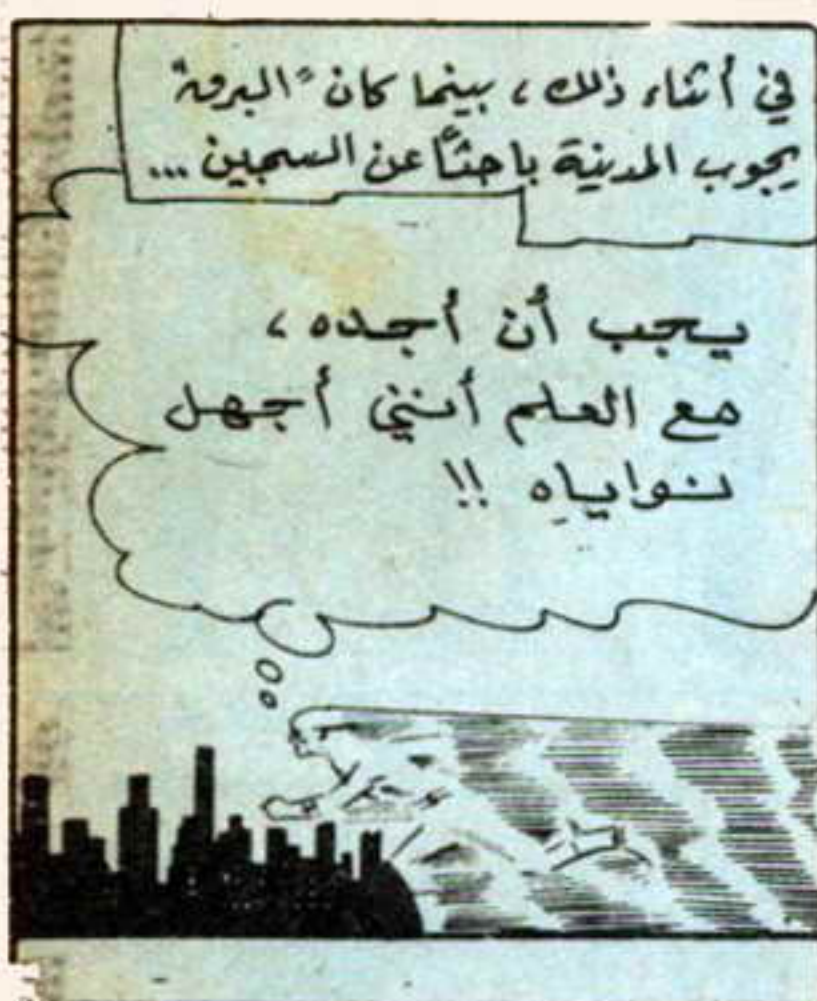 في أثناء ذلك، بينما كان "البرق"
يجوب المدينة باحثًا عن السجين ...
يجب أن أجده،
مع العلم أنني أجهل
نواياه !!